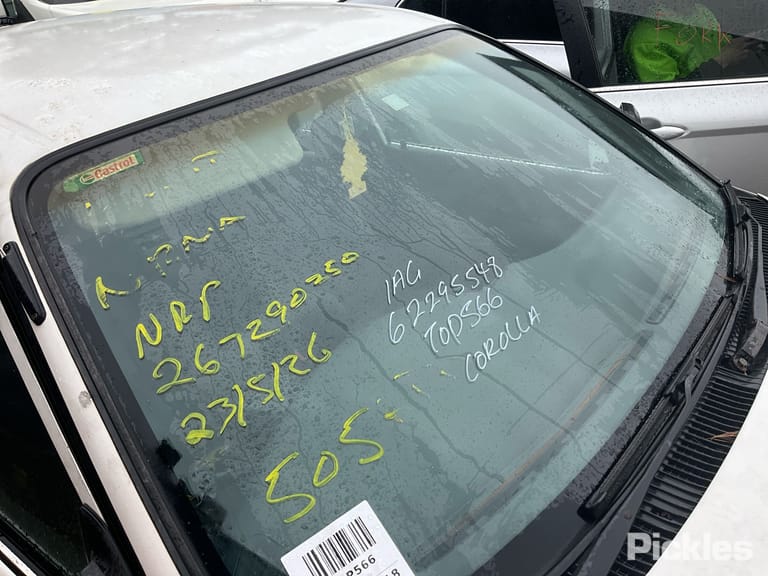 Castrol
NRT
267290250
23/5/26
505
IAG
62295548
TOP566
COROLLA
P566
Pickles